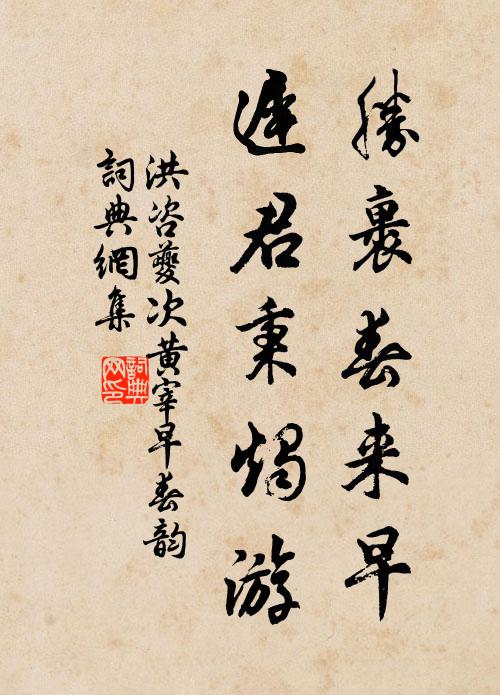 勝裏春来早
遲君秉燭游
洪咨夔次黄宰早春韵
詞典網集
詞典网印